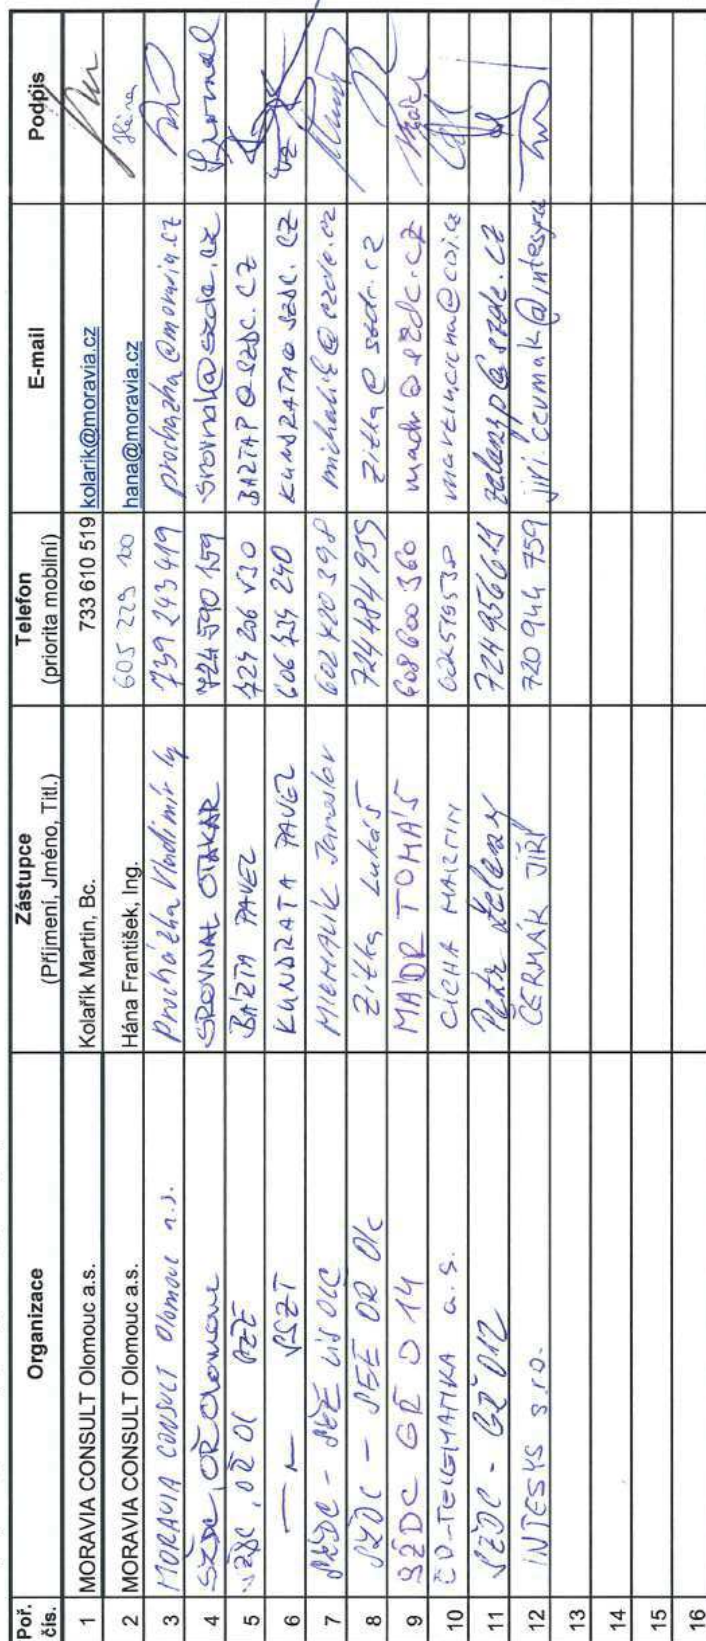 Poř. čís. Organizace Zástupce (Příjmení, Jméno, Titl.) Telefon (priorita mobilní) E-mail Podpis
1 MORAVIA CONSULT Olomouc a.s. Kolařík Martin, Bc. 733 610 519 kolarik@moravia.cz
2 MORAVIA CONSULT Olomouc a.s. Hána František, Ing. 605 229 100 hana@moravia.cz Hána
3 MORAVIA CONSULT Olomouc a.s. Procházka Vladimír Ing 739 243 419 prochazka@moravia.cz
4 SŽDC, OŘ Olomouc SROVNAL OTAKAR 724 590 159 Srovnal@szdc.cz Srovnal
5 SŽDC, OŘ OL BÁRTA PAVEL BARTAP@SZDC.CZ
6 KUNDRATA PAVEL 606 KUNDRATA@SZDC.CZ
7 SŽDC - MICHALIK Jaroslav 602 michalik@szdc.cz
8 SŽDC - SEE OŘ Olc Zitka Lukáš 724 484 955 Zitka@szdc.cz
9 SŽDC GŘ O14 MÁDR TOMÁŠ 608 600 360 madr@szdc.cz
10 ČD-TELEMATIKA a.s. CÍCHA MARTIN martin.cicha@cdt.cz
11 SŽDC - GŘ O12 Petr Zelený zelenyp@szdc.cz
12 INTESYS s.r.o. ČERMÁK JIŘÍ 720 944 759
13
14
15
16